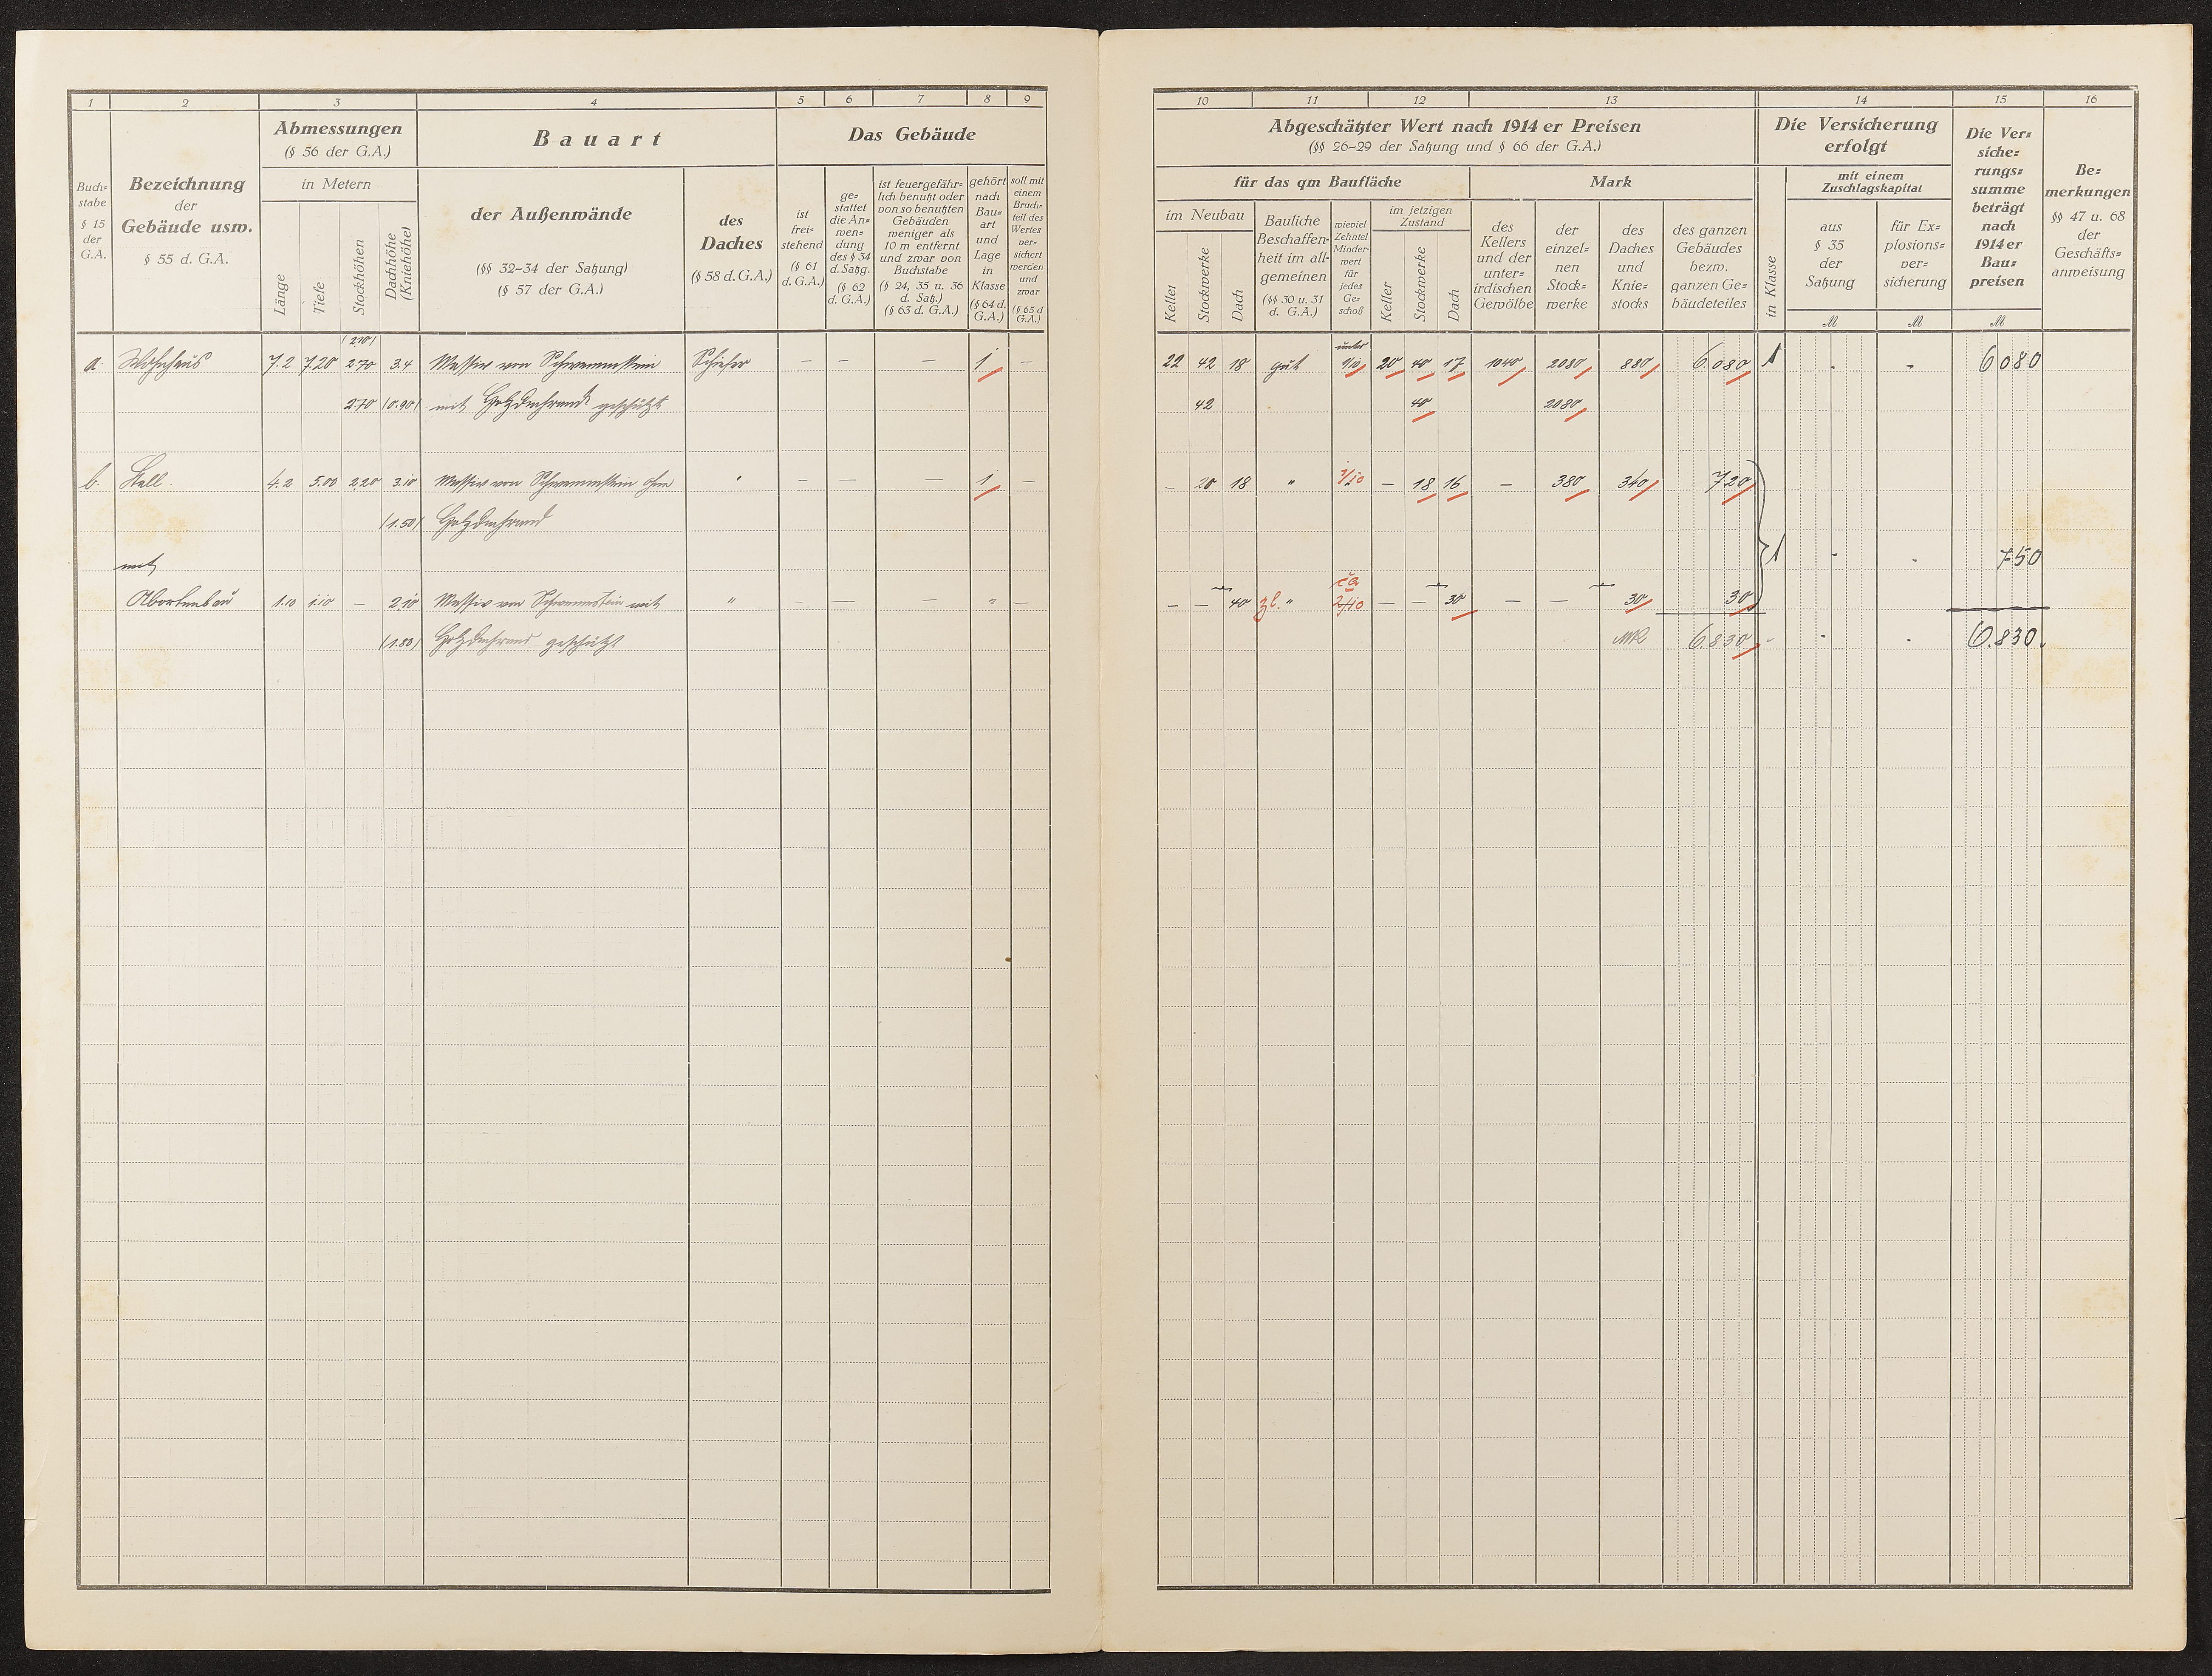 1 2 3 4 5 6 7 8 9
Abmessungen
(§ 56 der G.A.)
Bauart
Das Gebäude
Buch=
stabe
§ 15
der
G.A.
Bezeichnung
der
Gebäude usw.
§ 55 d. G.A.
in Metern
Länge
Tiefe
Stockhöhen
Dachhöhe
(Kniehöhe)
der Außenwände
(§§ 32–34 der Satzung)
(§ 57 der G.A.)
des
Daches
(§ 58 d. G.A.)
ist
frei=
stehend
(§ 61
d. G.A.)
ge=
stattet
die An=
wen=
dung
des § 34
d. Satzg.
(§ 62
d. G.A.)
ist feuergefähr=
lich benutzt oder
von so benutzten
Gebäuden
weniger als
10 m entfernt
und zwar von
Buchstabe
(§ 24, 35 u. 36
d. Satz.)
(§ 63 d. G.A.)
gehört
nach
Bau=
art
und
Lage
in
Klasse
(§ 64 d.
G.A.)
soll mit
einem
Bruch=
teil des
Wertes
ver=
sichert
werden
und
zwar
(§ 65 d
G.A.)
(2.70)
a. Wohnhaus 7.2 7.20 2.70 3.4 Massiv von Schwemmstein Schiefer — — — 1 —
2.70 (0.90) mit Holzdachrand geschützt
b. Stall. 4.2 5.00 2.20 3.10 Massiv von Schwemmstein ohne " — — — 1 —
(1.50) Holzdachrand
mit
Abortanbau 1.10 1.10 — 2.10 Massiv von Schwemmstein mit " — — — " —
(1.80) Holzdachrand geschützt
10 11 12 13 14 15 16
Abgeschätzter Wert nach 1914er Preisen
(§§ 26–29 der Satzung und § 66 der G.A.)
für das qm Baufläche
Mark
im Neubau
Keller
Stockwerke
Dach
Bauliche
Beschaffen=
heit im all=
gemeinen
(§§ 30 u. 31
d. G.A.)
wieviel
Zehntel
Minder=
wert
für
jedes
Ge=
schoß
im jetzigen
Zustand
Keller
Stockwerke
Dach
des
Kellers
und der
unter=
irdischen
Gewölbe
der
einzel=
nen
Stock=
werke
des
Daches
und
Knie=
stocks
des ganzen
Gebäudes
bezw.
ganzen Ge=
bäudeteiles
Die Versicherung
erfolgt
in Klasse
mit einem
Zuschlagskapital
aus
§ 35
der
Satzung
für Ex=
plosions=
ver=
sicherung
Die Ver=
siche=
rungs=
summe
beträgt
nach
1914er
Bau=
preisen
Be=
merkungen
§§ 47 u. 68
der
Geschäfts=
anweisung
M M M
unter
22 42 18 gut 1/10 20 40 17 1040 2080 880 6.080 1 . . 6080
42 40 2080
— 20 18 " 1/10 — 18 16 — 380 340 720
1 . . 750
ca
— — 40 zl. " 2/10 — — 30 — — 30 30
MR 6.830 . . . 6.830.